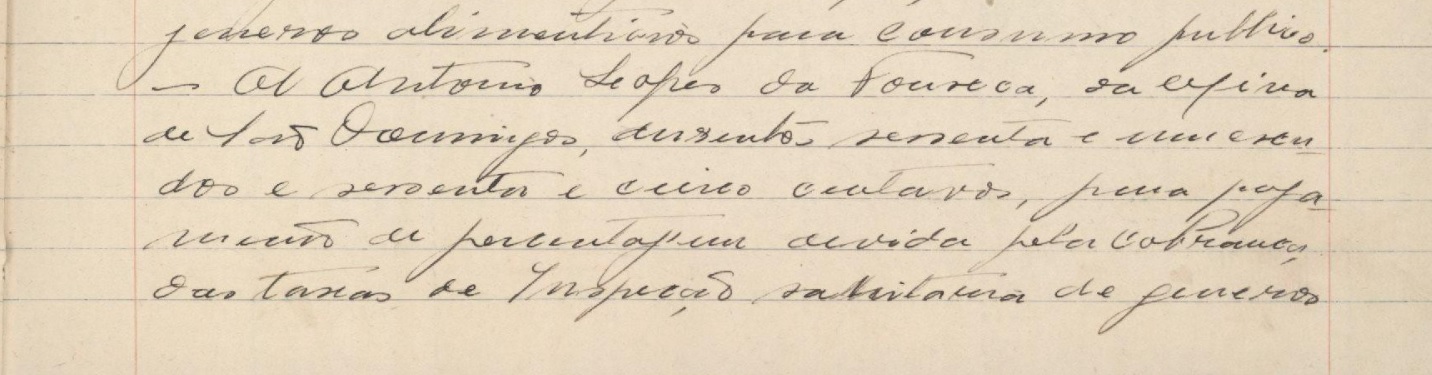 generos alimenticios para consumo publico.
— A Antonio Lopes da Fonseca, da
de São Domingos, duzentos sessenta e um escu-
dos e sessenta e cinco centavos, para paga-
mento de percentagem devida pela cobrança
das taxas de Inspeção sanitaria de generos